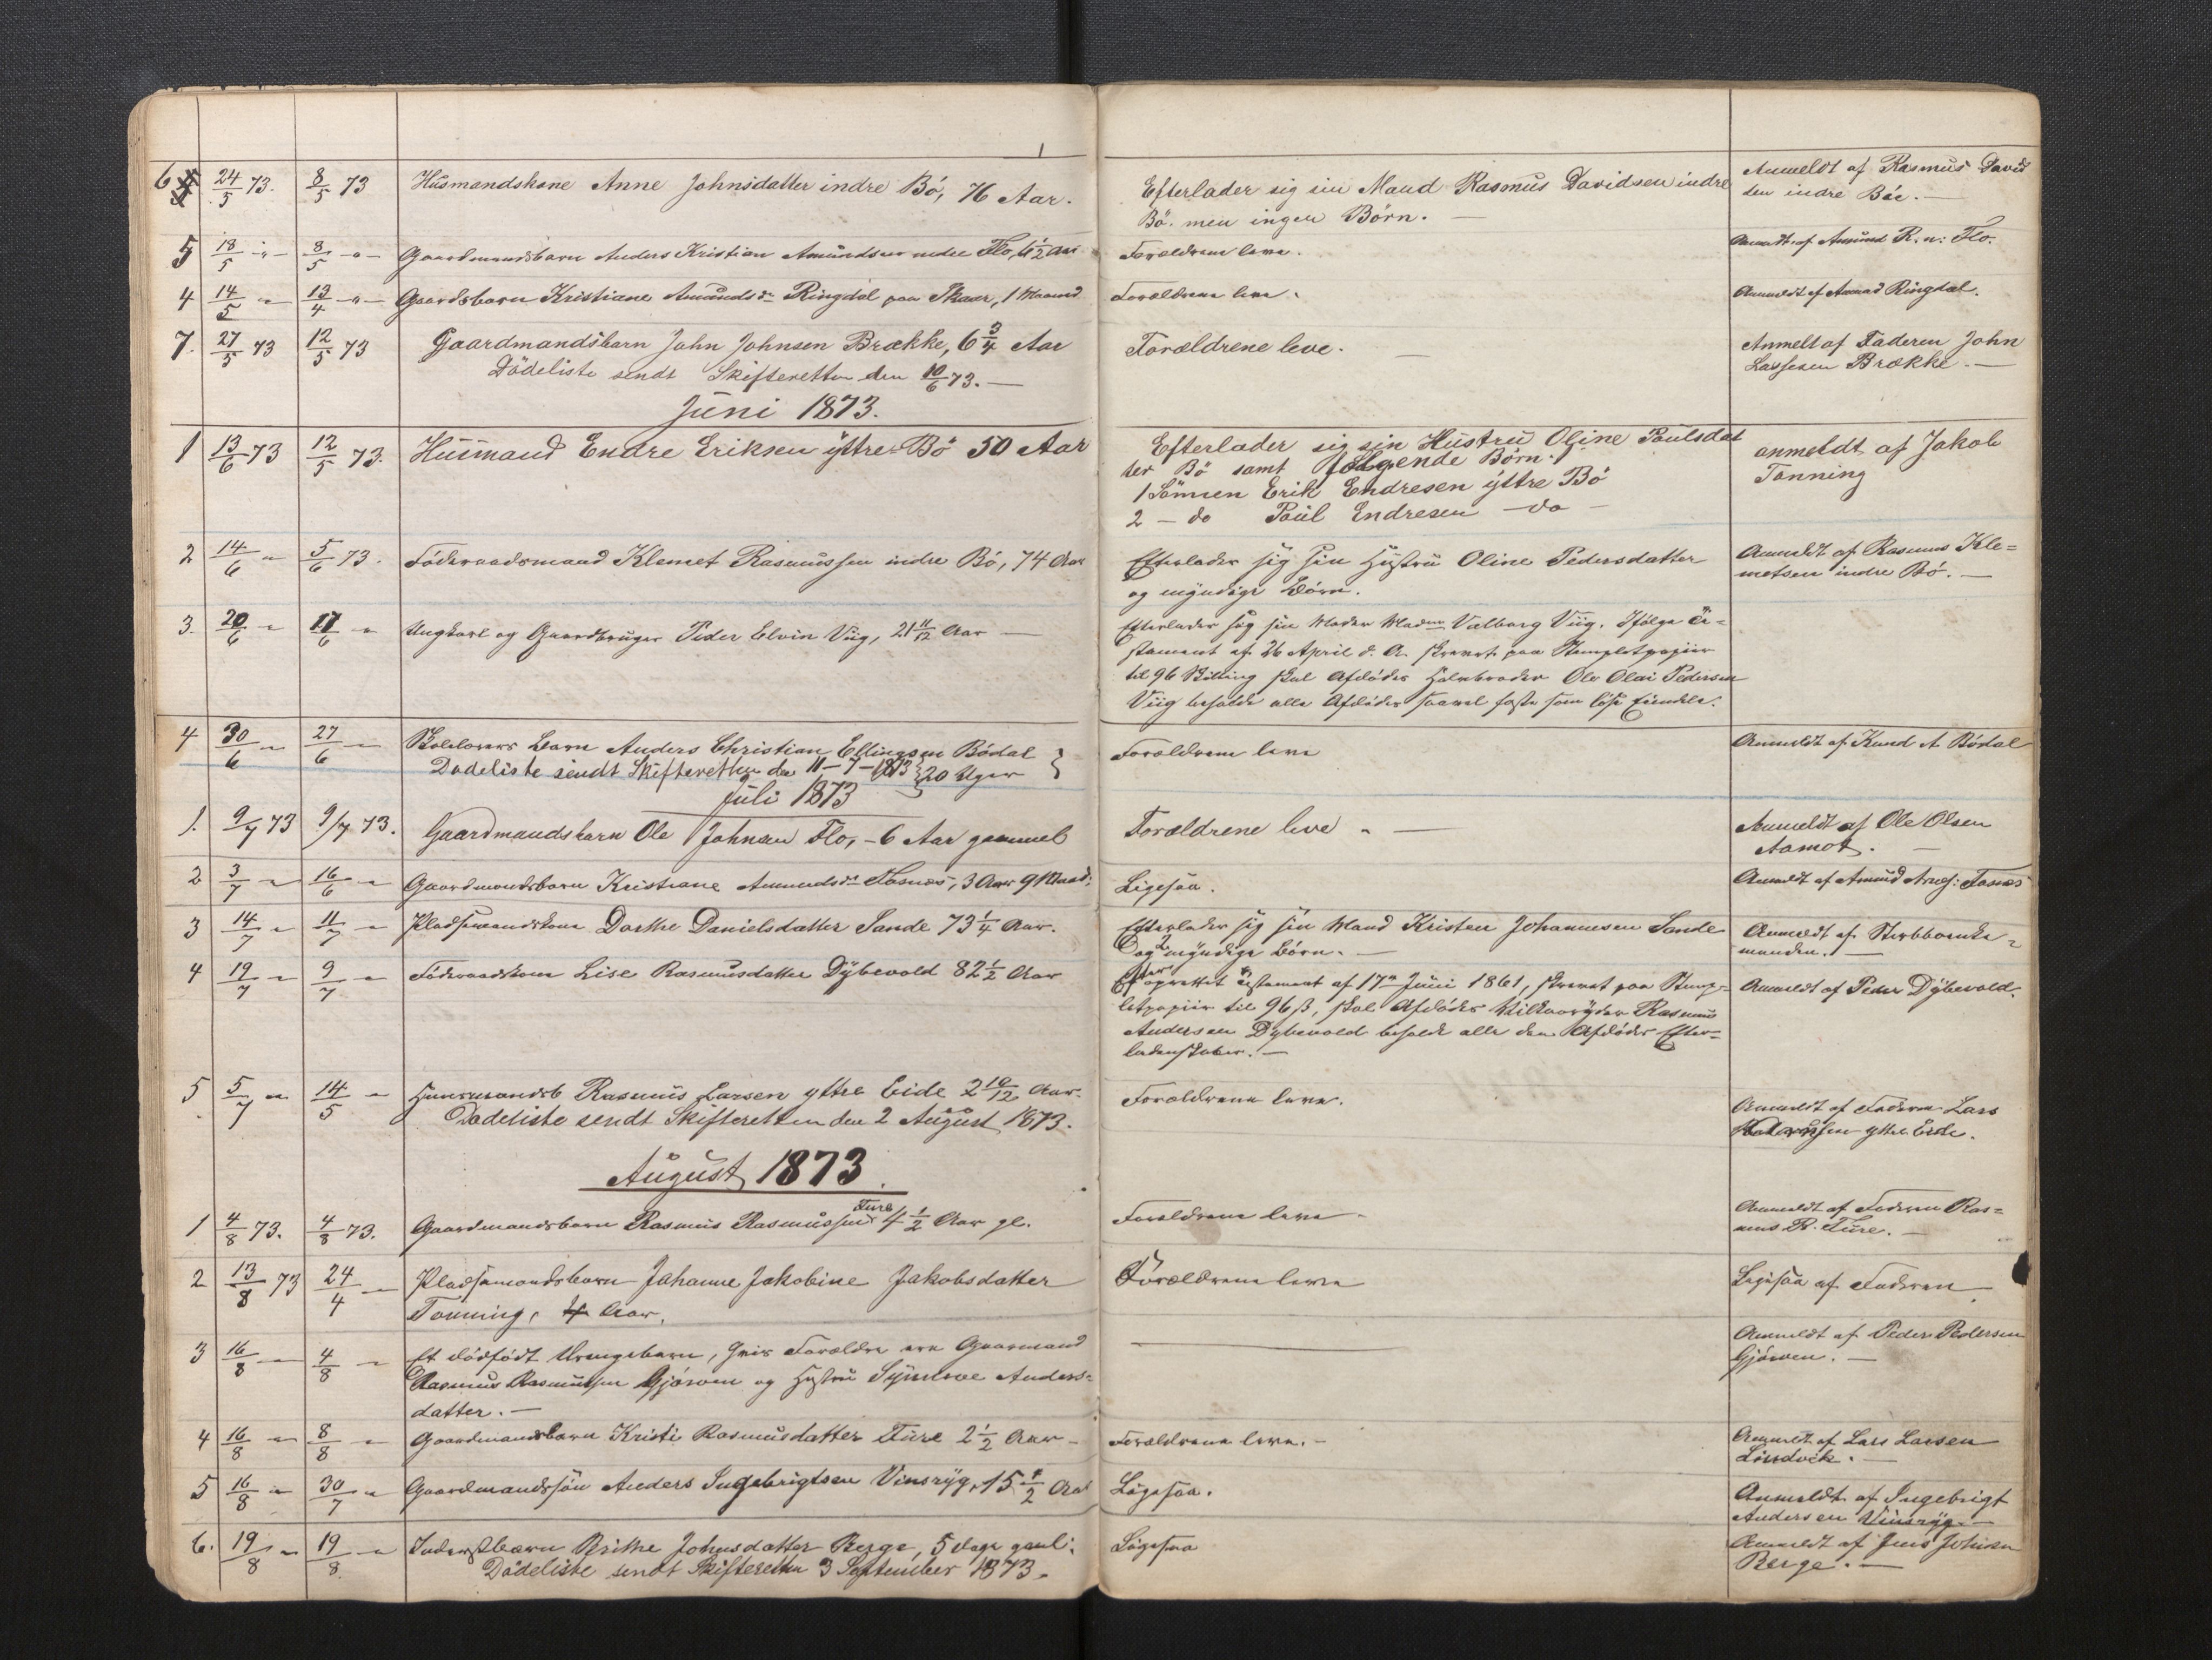 6 24/5 73. 8/5 73 Husmandskone Anne Johnsdatter indre Bö, 76 Aar.
Efterlader sig sin Mand Rasmus Davidsen indre
Bö. men ingen Börn. —
Anmeldt af Rasmus David
sen indre Böe. —
5 18/5 -"- 8/5 -"- Gaardmandsbarn Anders Kristian Amundsen nedre Flo, 6 1/2 Aar
Forældrene leve.
Anmeldt af Amund R. n: Flo.
4 14/5 " 13/4 -"- Gaardsbarn Kristiane Amundsdr Ringdal paa Skaar, 1 Maaned
Forældrene leve.
Anmeldt af Amund Ringdal.
7. 27/5 73 12/5 73 Gaardmandsbarn John Johnsen Brække, 6 3/4 Aar
Dödeliste sendt Skifteretten den 10/6 73. —
Forældrene leve. —
Anmelt af Faderen John
Lassesen Brække. —
Juni 1873.
1 13/6 73 12/5 73. Huusmand Endre Eriksen yttre Bö 50 Aar
Efterlader sig sin Hustru Oline Paulsdat
ter Bö samt fölgende Börn.
1 Sönnen Erik Endresen yttre Bö
2 – do Paul Endresen – do –
anmeldt af Jakob
Tonning
2 14/6 " 5/6 73. Föderaadsmand Klemet Rasmussen indre Bö, 74 Aar
Efterlader sig sin Hustru Oline Pedersdatter
og myndige Börn.
Anmeldt af Rasmus Kle=
metsen indre Bö. —
3. 20/6 " 17/6 " Ungkarl og Gaardbruger Peder Elvin Viig, 21 11/12 Aar —
Efterlader sig sin Moder Madme Valborg Viig. Ifölge Te=
stament af 26 April d. A. skrevet paa Stemplet papiir
til 96 Skilling skal Afdödes Halvbroder Ole Olai Pedersen
Viig beholde alle Afdödes saavel faste som löse Eiendele.
4 30/6 " 27/6 — Skolelærers Barn Anders Christian Ellingsen Bödal
Dødeliste sendt Skifteretten den 11 – 7 – 1873 20 Uger
Forældrene leve
Anmeldt af Knud A Bödal
Juli 1873
1. 9/7 73 9/7 73. Gaardmandsbarn Ole Johnsen Flo, – 6 Aar gammel
Forældrene leve " —
Anmeldt af Ole Olsen
Aamot. —
2 3/7 " 16/6 " Gaardmandsbarn Kristiane Amundsdr Fosnæs, 3 Aar 9 Maad:
Ligesaa.
Anmeldt af Amund Fosnæs
3 14/7 " 11/7 " Pladsmandskone Dorthe Danielsdatter Sande 73 1/4 Aar.
Efterlader sig sin Mand Kristen Johannesen Sande
og 2 myndige Börn. —
Anmeldt af Sterbboenke=
manden. —
4 19/7 " 9/7 " Föderaadskone Lise Rasmusdatter Dybevold 82 1/2 Aar
Efter oprettet Testament af 17de Juni 1861, skrevet paa Stemp-
letpapiir til 96 ß, skal Afdödes Rasmus
Andersen Dybevold beholde alle den Afdödes Efter=
ladenskaber. —
Anmeldt af Peder Dybevold.
5 5/7 " 14/5 " Huusmandsb Rasmus Larsen yttre Eide 2 10/12 Aar.
Dødeliste sendt Skifteretten den 2 August 1873.
Forældrene leve.
Anmeldt af Faderen Lars
yttre Eide.
August 1873.
1 4/8 73. 4/8 73. Gaardmandsbarn Rasmus Rasmussen Fure 4 1/2 Aar gl.
Forældrene leve —
Anmeldt af Faderen Ras=
mus R. Fure. —
2 13/8 73 24/4 — Pladsemandsbarn Johanne Jakobine Jakobsdatter
Tonning, Aar.
Forældrene leve
Ligesaa af Faderen
3 16/8 — 4/8 " Et dödfödt Drengebarn, hvis Forældre ere Gaarmand
Rasmus Rasmussen Gjörven og Hustru Synneve Anders=
datter. —
—
Anmeldt af Peder Pedersen
Gjörven. —
4 16/8 " 8/8 " Gaardmandsbarn Kristi Rasmusdatter Fure 2 1/2 Aar —
Forældrene leve. –
Anmeldt af Lars Larsen
5 16/8 " 30/7 " Gaardmandssön Anders Ingebrigtsen Vinsryg, 15 1/2 Aar
Ligesaa.
Anmeldt af Ingebrigt
Andersen Vinsryg. —
6. 19/8 " 19/8 " Inderstbarn Brithe Johnsdatter Berge, 5 dage
Dödeliste sendt Skifteretten 3 September 1873.
Ligesaa
Anmeldt af Johnsen
Berge. —